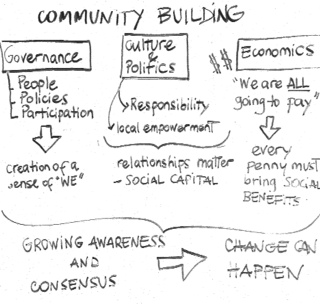 COMMUNITY BUILDING
Governance
People
Policies
Participation
creation of a
sense of "WE"
Culture
&
Politics
Responsibility
local empowerment
relationships matter
- SOCIAL CAPITAL
$$ Economics
"We are ALL
going to pay"
every
penny must
bring SOCIAL
BENEFITS
GROWING AWARENESS
AND
CONSENSUS
CHANGE CAN
HAPPEN